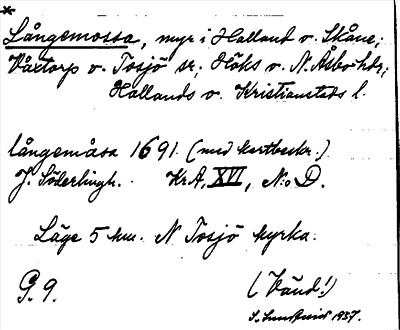 *
Långemossa, myr i Halland o. Skåne;
Våxtorp o. Tosjö sn; Höks o. N. Åsbo hdr;
Hallands o. Kristianstads l.
långemåsa 1691. (med kartbeskr.)
J. Söderlingh. KrA, XVI, N:o D.
Läge 5 km. N Tosjö kyrka.
G. 9. (Vänd!)
1937.